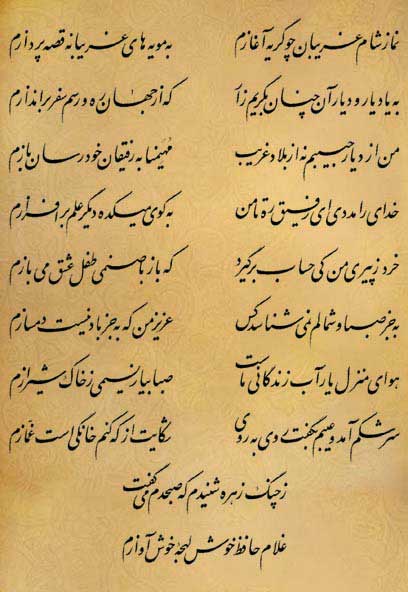 نماز شام غریبان چو گریه آغازم به مویه های غریبانه قصه پردازم
به یاد یار و دیار آن چنان بگریم زار که از جهان ره و رسم سفر براندازم
من از دیار حبیبم نه از بلاد غریب مهیمنا به رفیقان خود رسان بازم
خدای را مددی ای رفیق ره تا من به کوی میکده دیگر علم برافرازم
خرد ز پیری من کی حساب برگیرد که باز با صنمی طفل عشق می بازم
به جز صبا و شمالم نمی شناسد کس عزیز من که به جز باد نیست دمسازم
هوای منزل یار آب زندگانی ماست صبا بیار نسیمی ز خاک شیرازم
سرشکم آمد و عیبم بگفت روی به روی شکایت از که کنم خانگی است غمازم
ز چنگ زهره شنیدم که صبحدم می گفت
غلام حافظ خوش لهجه خوش آوازم